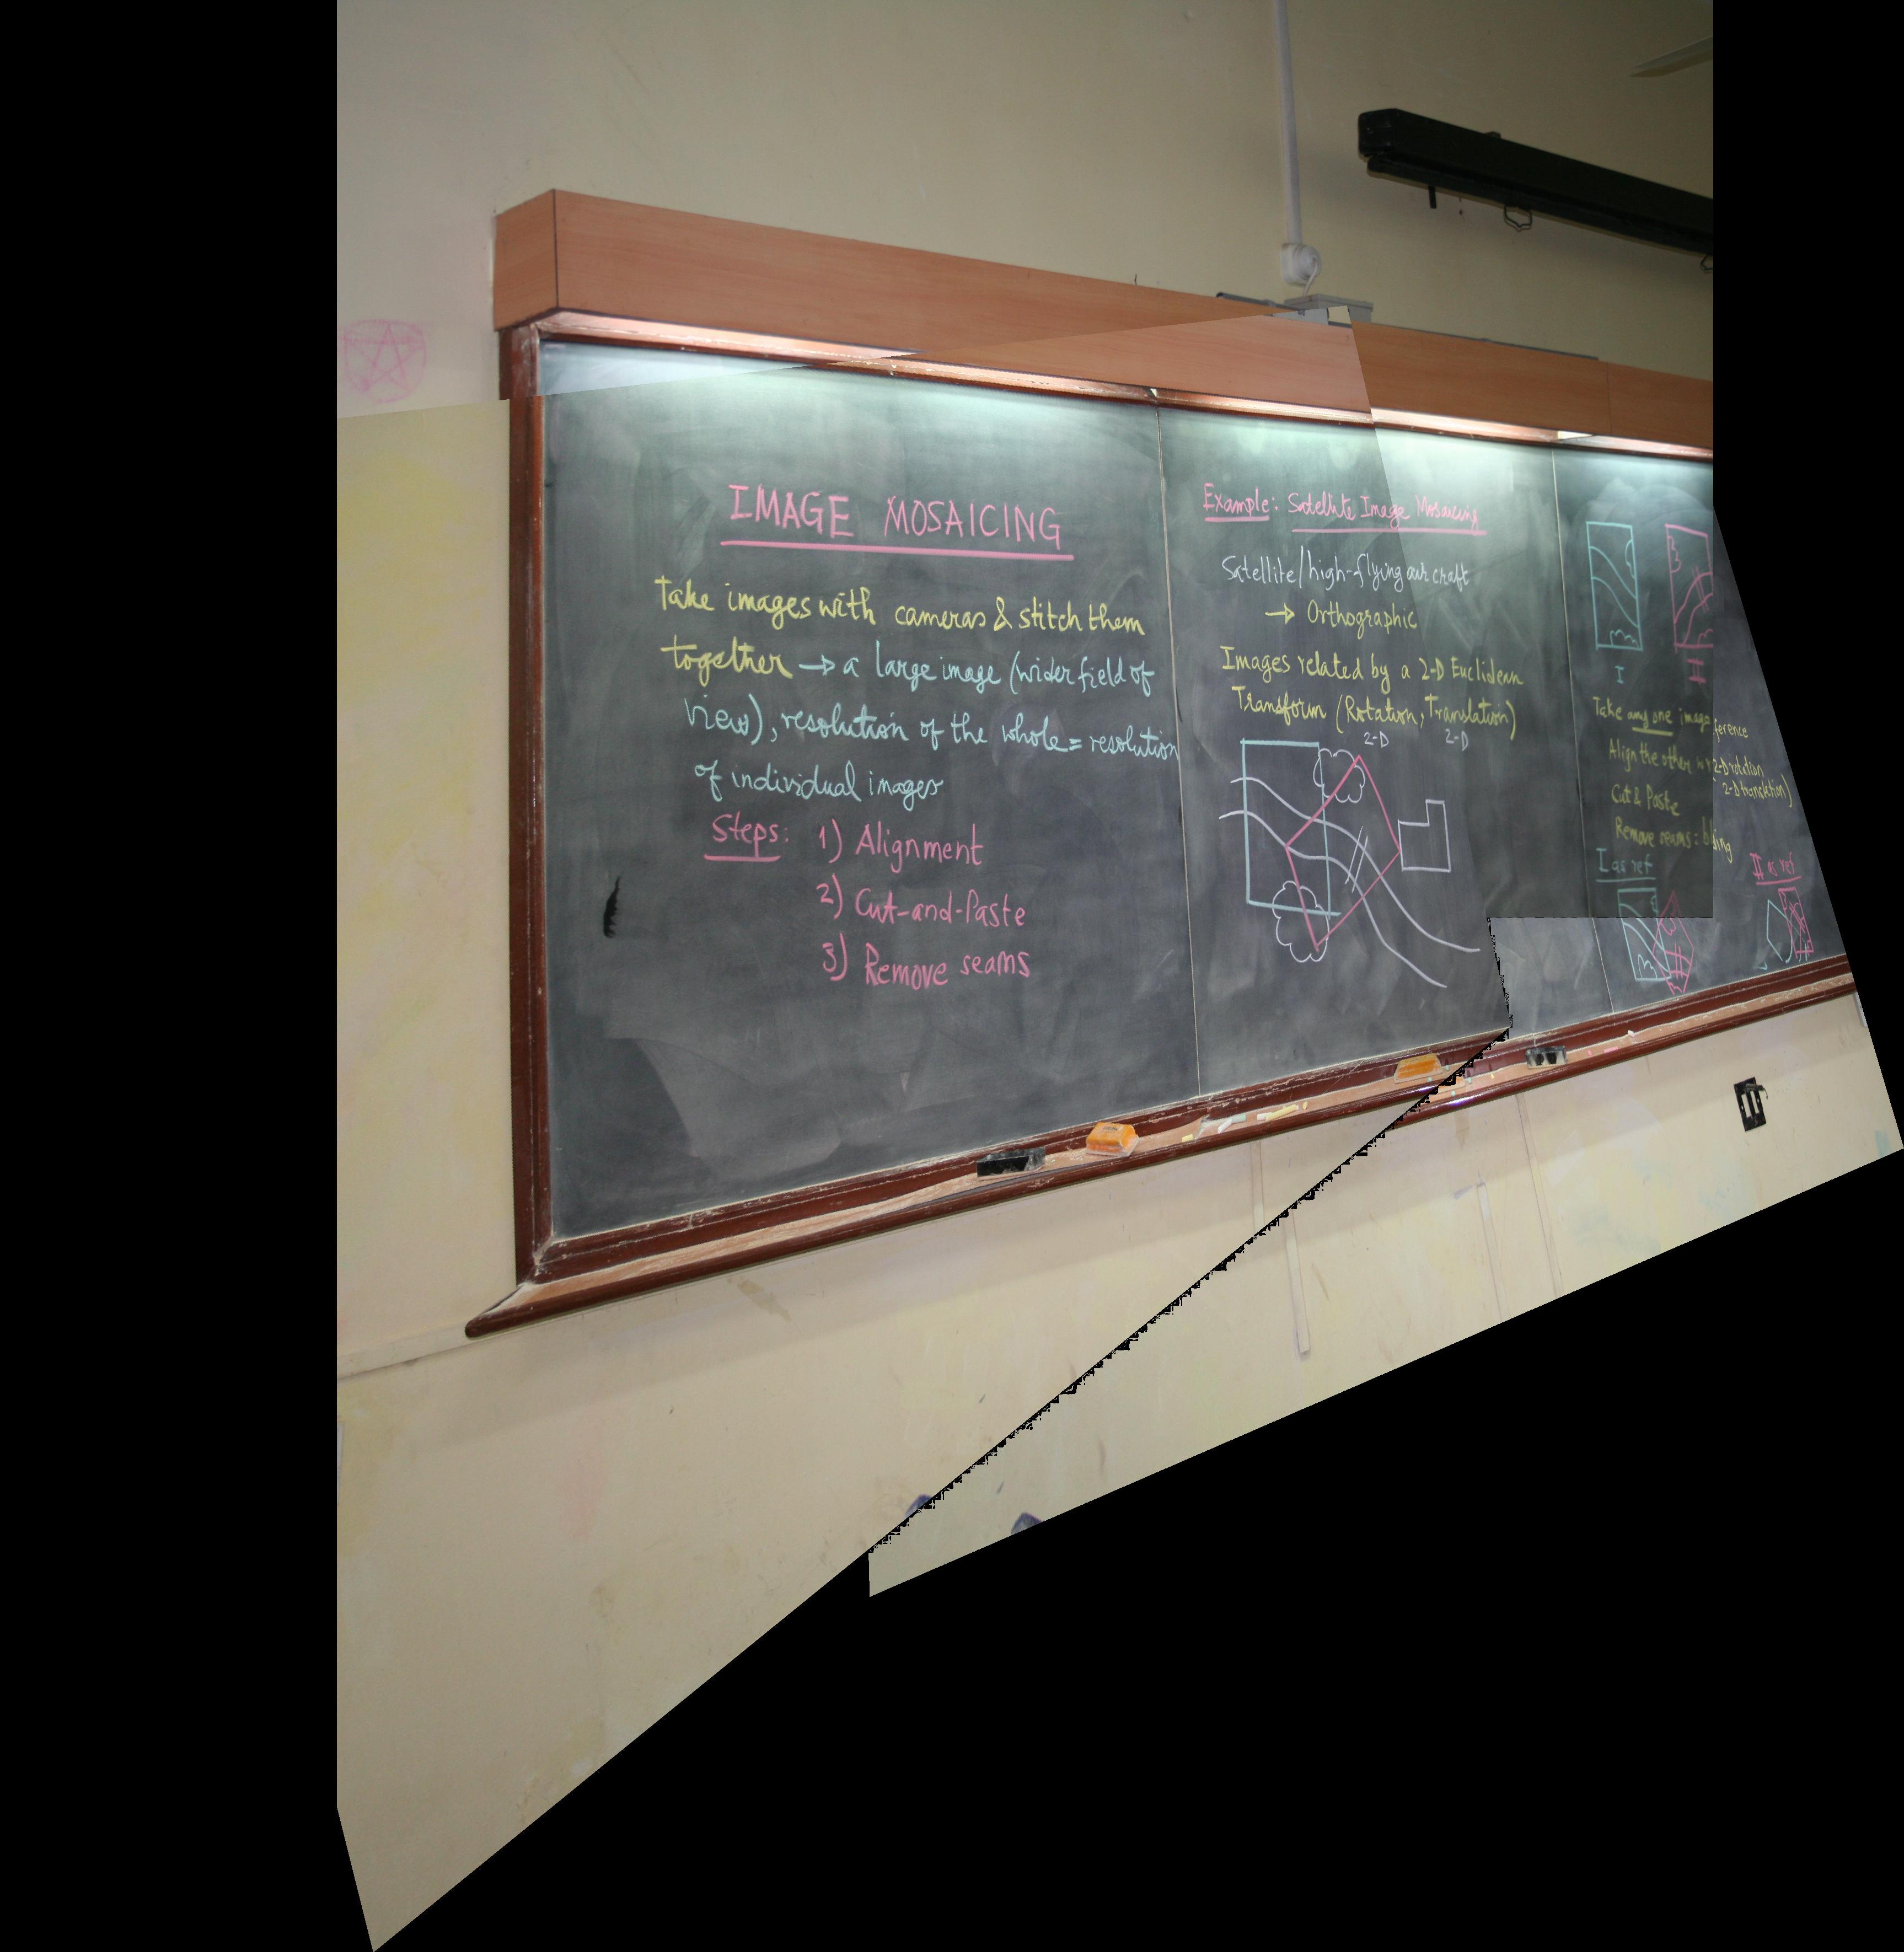 IMAGE MOSAICING
Take images with cameras & stitch them
together → a large image (wider field of
view), resolution of the whole = resolution
of individual images
Steps: 1) Alignment
2) Cut-and-Paste
3) Remove seams
Example: Satellite Image Mosaicing
Satellite/high-flying air craft
→ Orthographic
Images related by a 2-D Euclidean
Transform (Rotation, Translation)
2-D 2-D
I II
Take any one image
ference
Align the other
2-D rotation
2-D translation)
Cut & Paste
Remove seams:
I as ref
II as ref